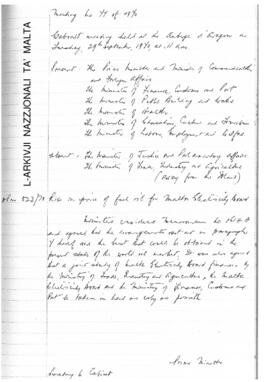 L-ARKIVJI NAZZJONALI TA' MALTA
Meeting No 71 of 1970
Cabinet meeting held at the Auberge d'Aragon on
Tuesday, 29th September, 1970, at 11 a.m.
Present: The Prime Minister and Minister of Commonwealth
and Foreign Affairs
The Minister of Finance, Customs and Port
The Minister of Public Building and Works
The Minister of Health
The Minister of Education, Culture and Tourism
The Minister of Labour, Employment and Welfare
Absent: The Minister of Justice and Parliamentary Affairs
The Minister of Trade, Industry and Agriculture
(away from the Island)
Rise in price of fuel oil for Malta Electricity Board
Ministers considered Memorandum No
and agreed that the arrangements set out in paragraph
were the best that could be obtained in the
present state of the world oil market. It was also agreed
that a joint study of Malta Electricity Board finances by
the Ministry of Trade, Industry and Agriculture, the Malta
Electricity Board and the Ministry of Finance, Customs and
Port be taken in hand as early as possible
Prime Minister
Secretary to Cabinet